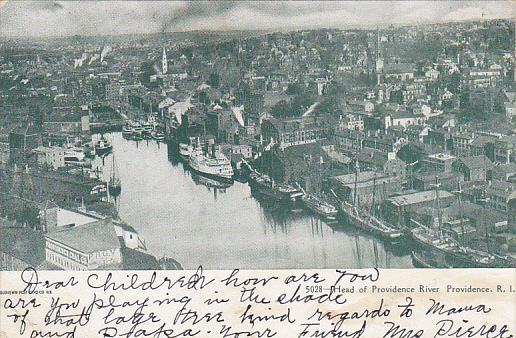 5028—Head of Providence River Providence. R. I.
Dear Children how are You
are You playing in the shade
of that large tree kind regards to Mama
and Papa. Your Friend Mrs Pierce